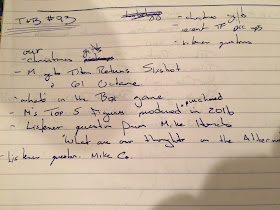 TVB #93
- christmas gifts
- recent TF pick ups
- listener questions
our gifts
- christmas
- M gets Titan Returns Slugshot
& G1 Octane
- what's in the Box game
- M's Top 5 Figures purchased in 2016
- Listener question from Mike
"What are our thoughts on the
- Listener question. Mike Co.